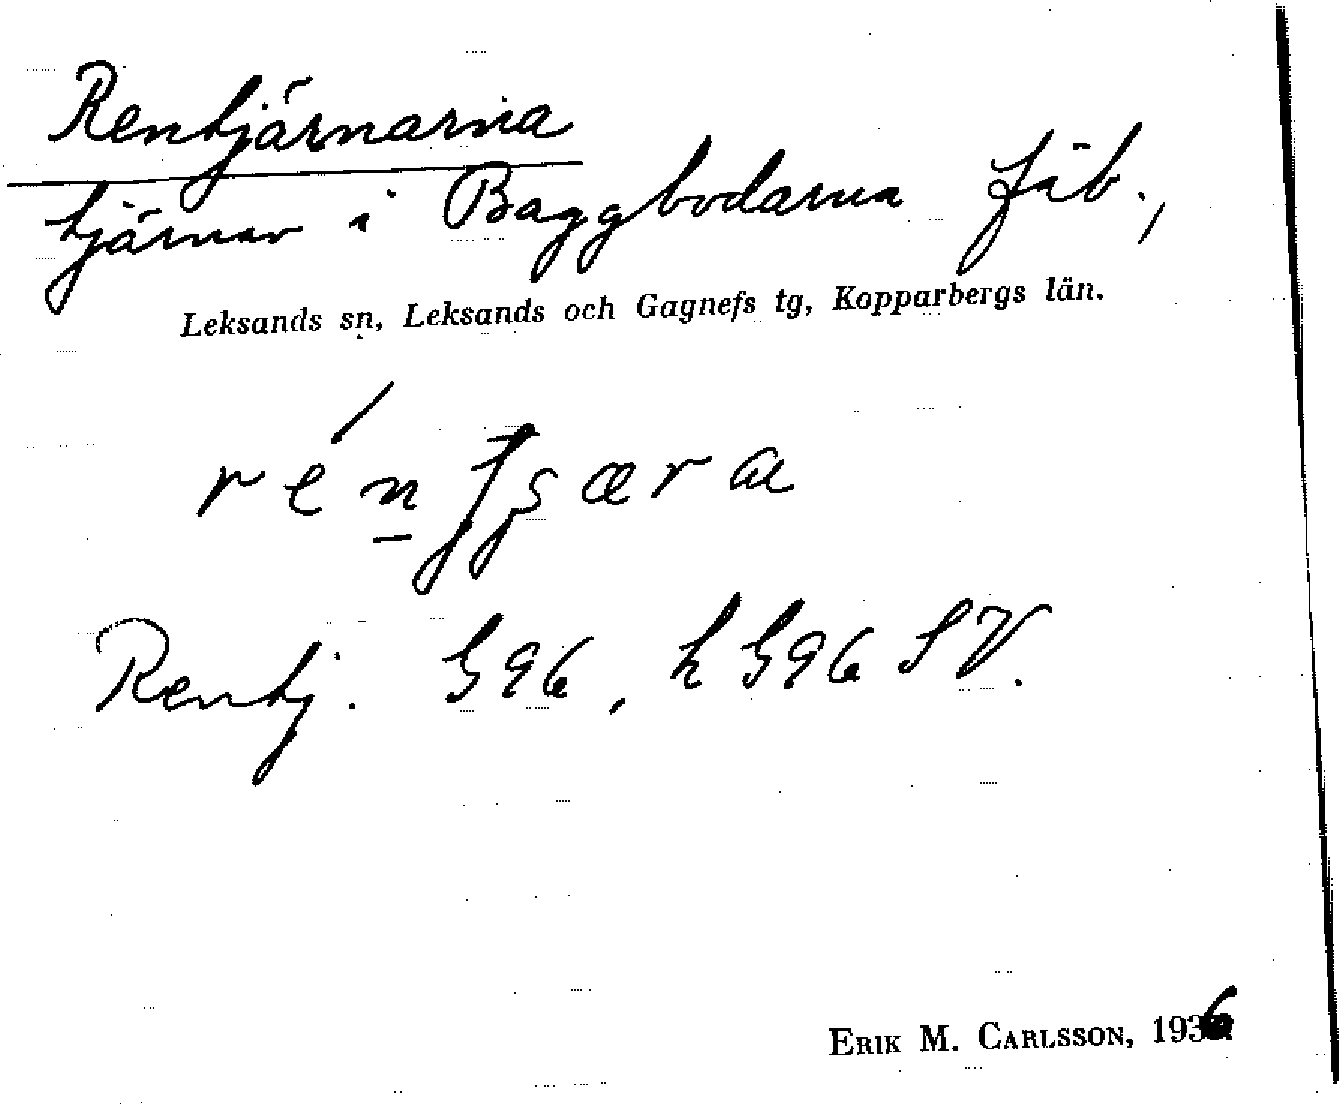 Rentjärnarna
tjärnar i Baggbodarna fäb.,
Leksands sn, Leksands och Gagnefs tg, Kopparbergs län.
Rentj. G96, h G96 SV.
ERIK M. CARLSSON, 1936